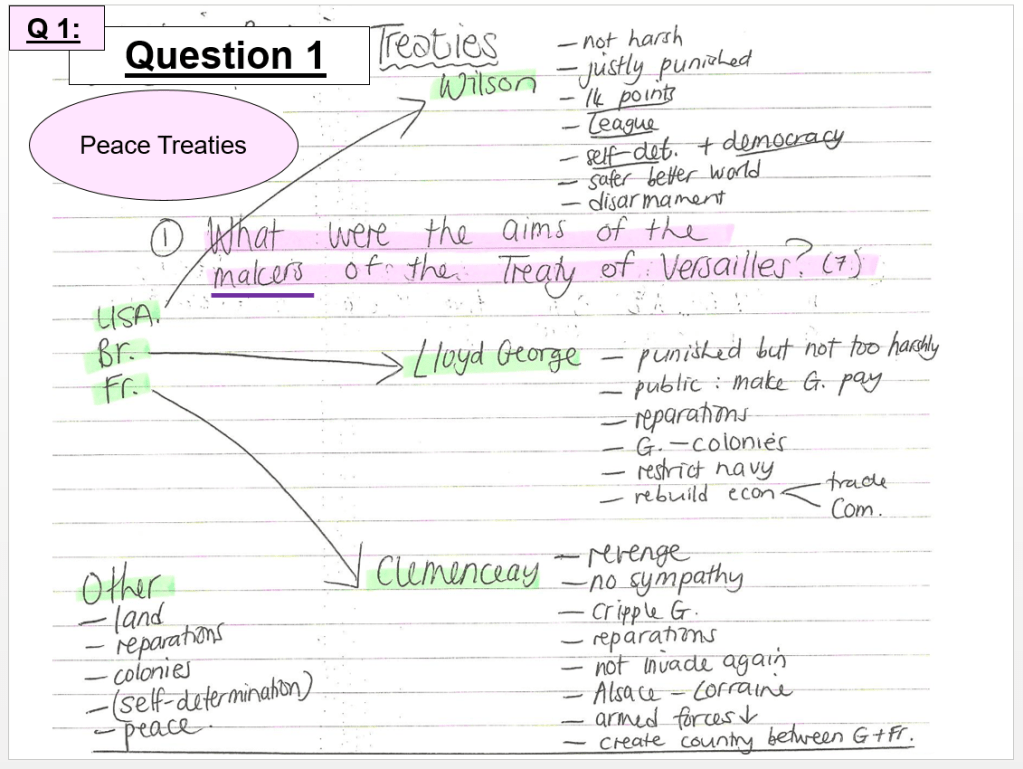 Q 1:
Question 1
Peace Treaties
Treaties
Wilson
– not harsh
– justly punished
– 14 points
– League
– self-det. + democracy
– safer better world
– disarmament
① What were the aims of the
makers of the Treaty of Versailles? (7)
USA.
Br.
Fr.
Lloyd George
– punished but not too harshly
– public : make G. pay
– reparations
– G. – colonies
– restrict navy
– rebuild econ
trade
Com.
Clemenceay
– revenge
– no sympathy
– cripple G.
– reparations
– not invade again
– Alsace – Lorraine
– armed forces ↓
– create country between G + Fr.
Other
– land
– reparations
– colonies
– (self-determination)
– peace.